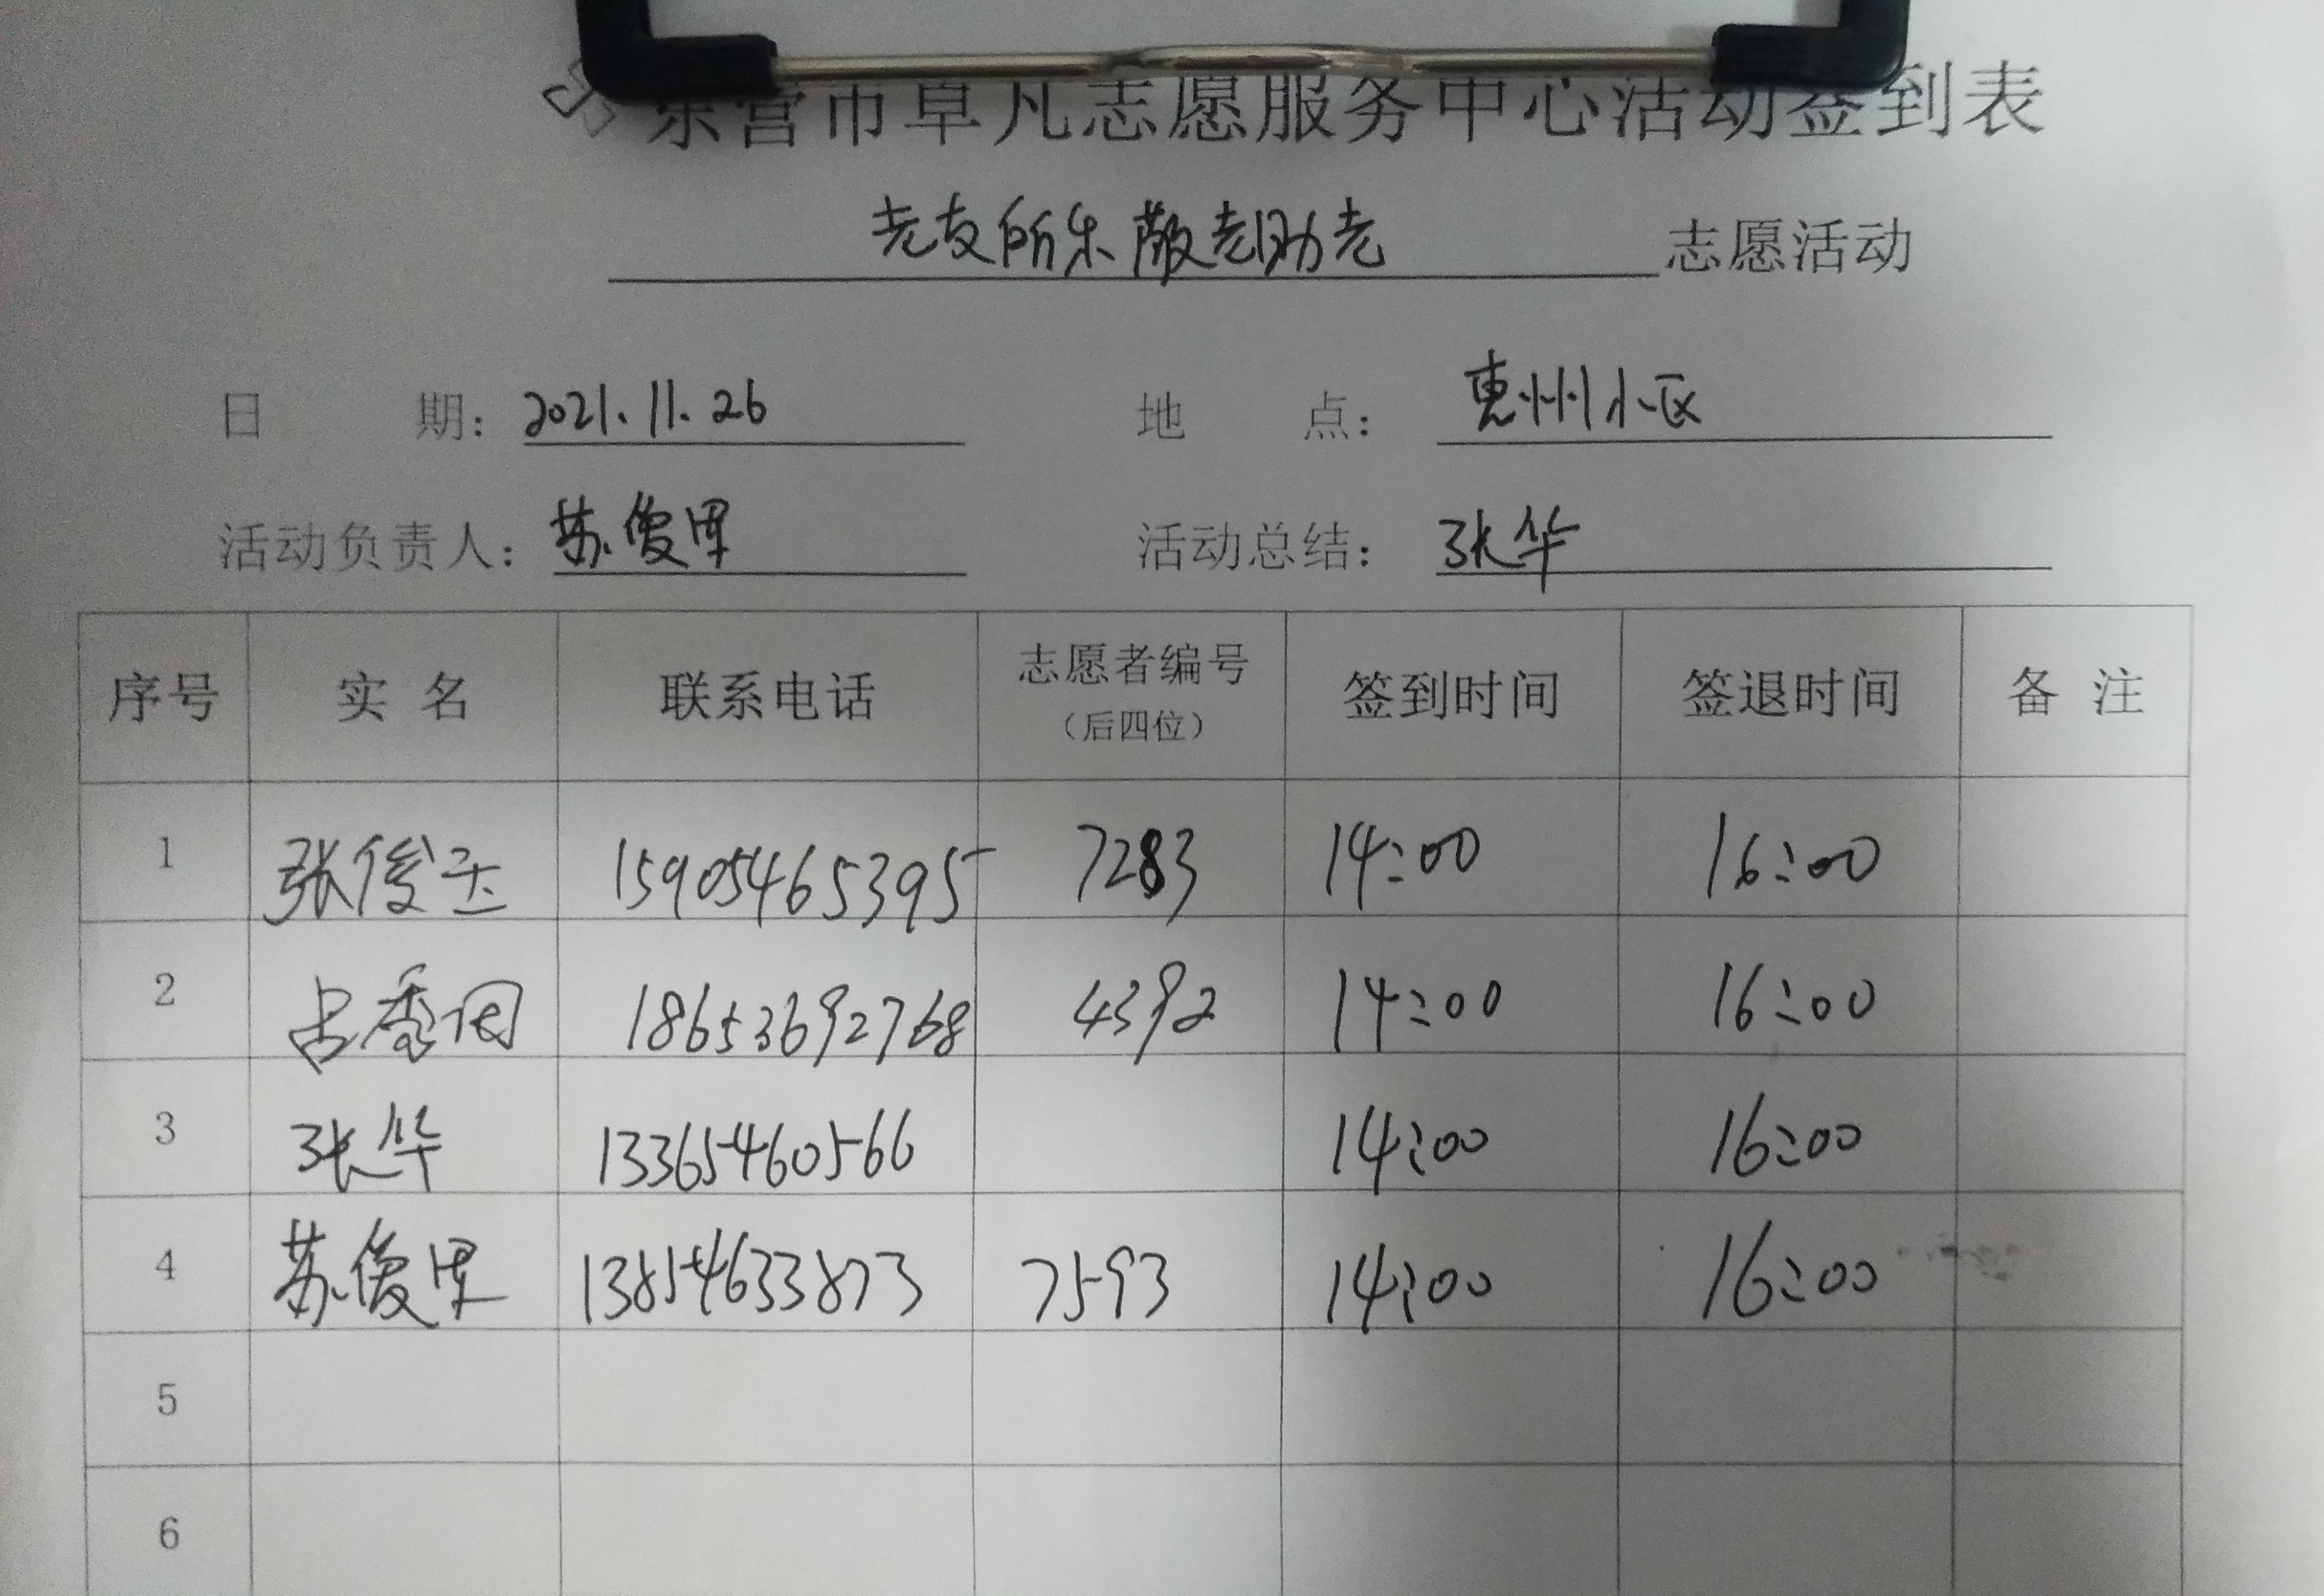 东营市草凡志愿服务中心活动签到表
老友所乐敬老助老 志愿活动
日 期：2021.11.26 地 点：惠州小区
活动负责人：苏俊 活动总结：张华
序号 实 名 联系电话 志愿者编号（后四位） 签到时间 签退时间 备 注
1 张俊玉 15905465395 7283 14:00 16:00
2 18653692768 4392 14:00 16:00
3 张华 13365460566 14:00 16:00
4 苏俊 13854633873 7593 14:00 16:00
5
6